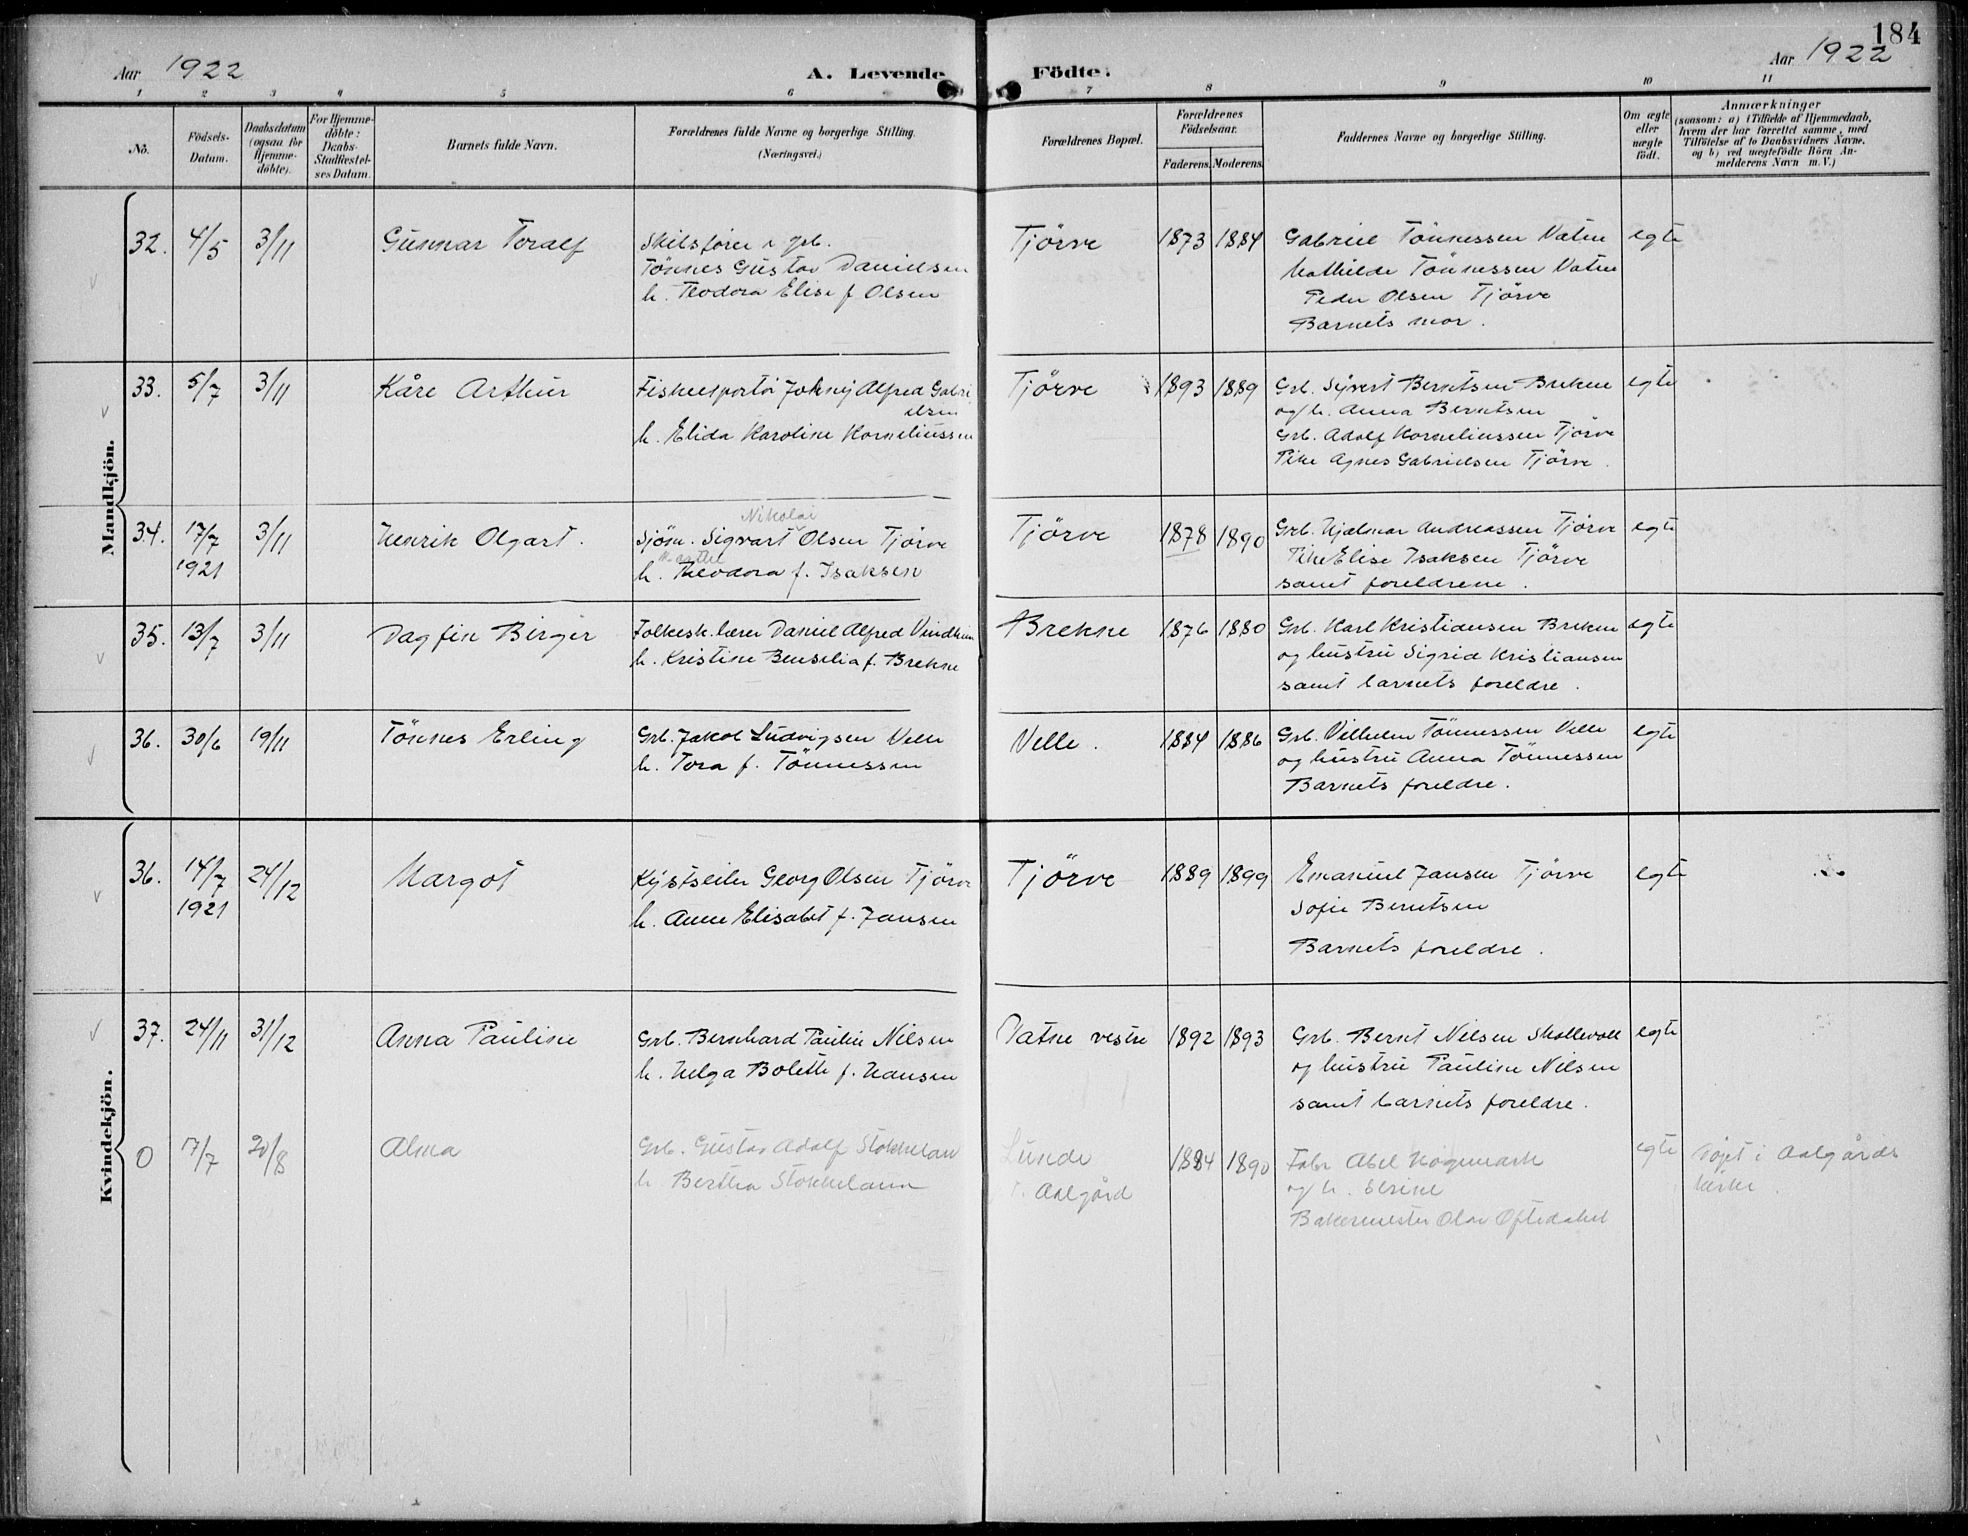 184
Aar 1922 A. Levende Födte. Aar 1922
1 2 3 4 5 6 7 8 9 10 11
No.
Födsels-Datum.
Daabsdatum (ogsaa for Hjemme-döbte).
For Hjemme-döbte: Daabs-Stadfestel-ses Datum.
Barnets fulde Navn.
Forældrenes fulde Navne og borgerlige Stilling.
(Næringsvei.)
Forældrenes Bopæl.
Forældrenes Födselsaar.
Faderens. Moderens.
Faddernes Navne og borgerlige Stilling.
Om ægte eller uægte födt.
Anmærkninger
(saasom: a) i Tilfælde af Hjemmedaab,
hvem der har forrettet samme, med
Tilföielse af to Daabsvidners Navne,
og b) ved uægtefödte Börn An-
melderens Navn m. V.)
Mandkjön.
32. 4/5 3/11 Gunnar Toralf
Skibsfører & grb.
Tönnes Gustav Danielsen
h. Teodora Elise f. Olsen
Tjörve 1873 1884
Gabriel Tönnessen Vatne
Mathilde Tönnessen Vatne
Peder Olsen Tjörve
Barnets mor.
egte
33. 5/7 3/11 Kåre Arthur
Fiskeexportör Johnny Alfred Gabri
elsen
h. Elida Karoline Korneliussen
Tjörve 1893 1889
Grb. Syvert Berntsen Brekne
og h. Anna Berntsen
Grb. Adolf Korneliussen Tjörve
Pike Agnes Gabrielsen Tjörve.
egte
34. 17/7 1921 3/11 Henrik Olgart.
Nikolai
Sjöm. Sigvart Olsen Tjörve
h. Theodora f. Isaksen
Tjörve 1878 1890
Grb. Hjalmar Andreassen Tjörve
Pike Elise Isaksen Tjörve
samt foreldrene.
egte
35. 13/7 3/11 Dagfin Birger
Folkesk.lærer Daniel Alfred Vindheim
h. Kristine Benselia f. Brekne
Brekne 1876 1880
Grb. Karl Kristiansen Brekne
og hustru Sigrid Kristiansen
samt barnets foreldre.
egte
36. 30/6 19/11 Tönnes Erling
Grb. Jakob Ludvigsen Velle
h. Tora f. Tönnessen
Velle. 1884 1886
Grb. Vilhelm Tönnessen Velle
og hustru Anna Tönnessen
Barnets foreldre.
egte
Kvindekjön.
36. 14/7 1921 24/12 Margot
Kystseiler Georg Olsen Tjörve
h. Anne Elisabet f. Jansen
Tjörve 1889 1899
Emanuel Jansen Tjörve
Sofie Berntsen
Barnets foreldre.
egte
37. 24/11 31/12 Anna Pauline
Grb. Bernhard Paulin Nilsen
h. Helga Bolette f. Hansen
Vatne vestre 1892 1893
Grb. Bernt Nilsen Skollevoll
og hustru Pauline Nilsen
samt barnets foreldre.
egte
0 17/7 20/8 Alma
Grb. Gustav Adolf Stokkeland
h. Bertha Stokkeland
Lunde
Aalgård
1884 1890
Fabr Abel Högemark
og h. Serine
Bakermester Olav Oftedahl
egte
döpt i Aalgårds
kirke